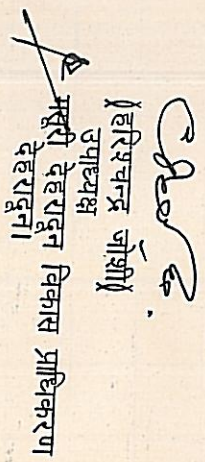 (हरिश्चन्द्र जोशी)
उपाध्यक्ष
मसूरी देहरादून विकास प्राधिकरण
देहरादून।